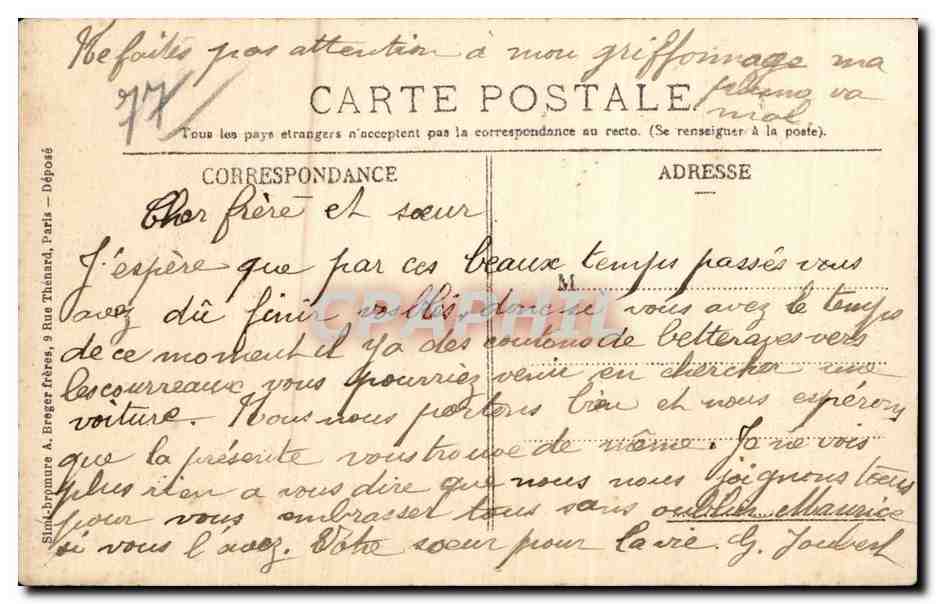 Ne faites pas attention à mon griffonnage ma
plume va
mal
77
CARTE POSTALE
Tous les pays étrangers n'acceptent pas la correspondance au recto. (Se renseigner à la poste).
CORRESPONDANCE
ADRESSE
Cher frère et sœur
J'espère que par ces beaux temps passés vous
M
avez dû finir vos blés, donc si vous avez le temps
de ce moment il y a des coutons de betteraves vers
les courreaux vous pourriez venir en chercher une
voiture. Nous nous portons bien et nous espérons
que la présente vous trouve de même. Je ne vois
plus rien a vous dire que nous nous joignons tous
pour vous embrasser tous sans oublier Maurice
si vous l'avez. Votre sœur pour la vie. G. Joubert
Simi-bromure A. Breger frères, 9 Rue Thénard, Paris — Déposé
CPAPHIL